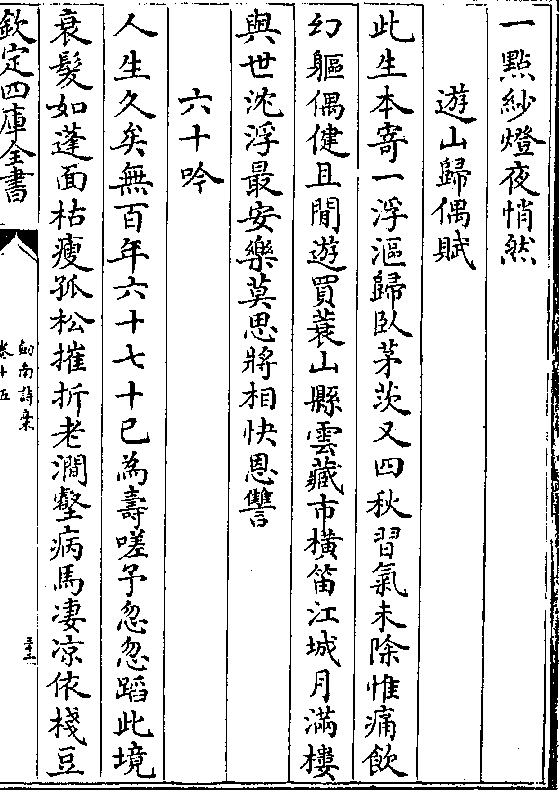 一點紗燈夜悄然
遊山歸偶賦
此生本寄一浮漚歸臥茅茨又四秋習氣未除惟痛飲
幻軀偶健且閒遊買蓑山縣雲藏市橫笛江城月滿樓
與世沈浮最安樂莫思將相快恩讐
六十吟
人生久矣無百年六十七十已為壽嗟予忽忽蹈此境
衰髮如蓬面枯瘦孤松摧折老澗壑病馬凄凉依棧豆
欽定四庫全書
劒南詩槀
卷十五